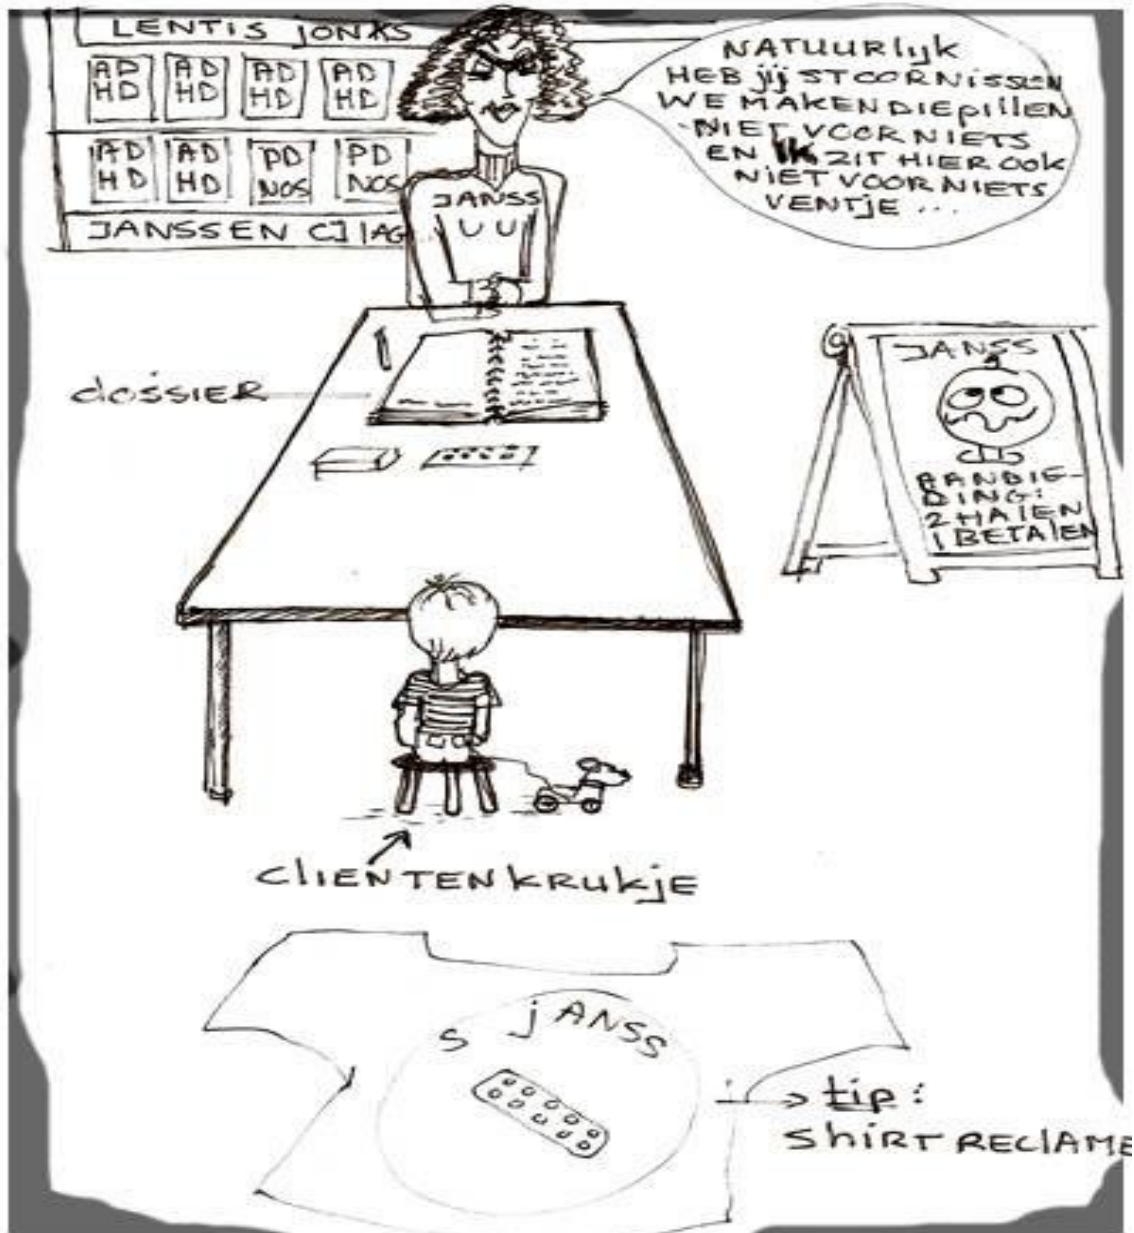 LENTIS JONXS
AD HD
AD HD
AD HD
AD HD
AD HD
AD HD
PD NOS
PD NOS
JANSSEN CILAG
NATUURLIJK
HEB JIJ STOORNISSEN
WE MAKEN DIE PILLEN
NIET VOOR NIETS
EN IK ZIT HIER OOK
NIET VOOR NIETS
VENTJE ...
JANSS
dossier
JANSS
AANBIE-
DING:
2 HALEN
1 BETALEN
CLIENTENKRUKJE
S JANSS
tip:
SHIRT RECLAME